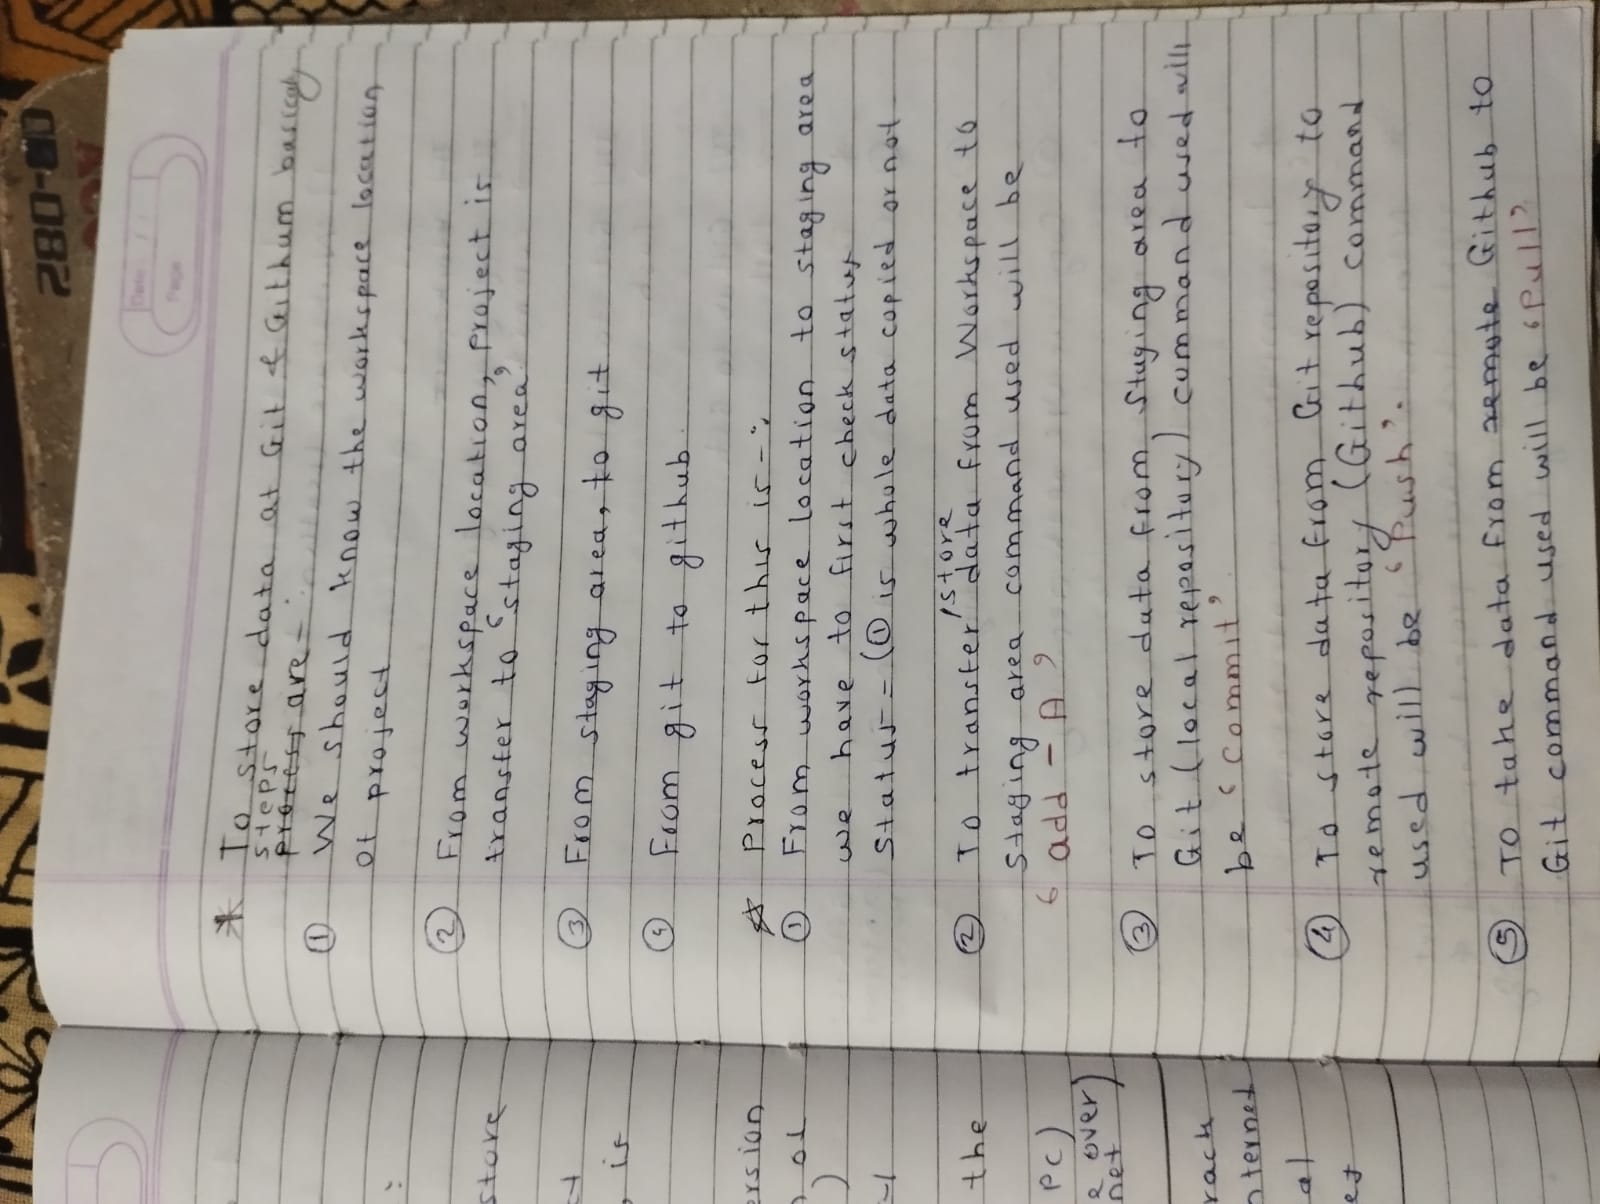 280-00
Date / /
Page
* To store data at Git & Githum basicaly
steps
process are -
① We should know the workspace location
of project
② From workspace location, project is
transfer to 'staging area'
③ From staging area, to git
④ From git to github.
☆ Process for this is -:
① From workspace location to staging area
we have to first check status
status = (① is whole data copied or not
/store
② To transfer data from Workspace to
staging area command used will be
' add - A '
③ To store data from staging area to
Git (local repository) command used will
be 'Commit'
④ To store data from Git repository to
remote repository (Github) command
used will be 'Push'.
⑤ To take data from remote Github to
Git command used will be 'Pull'
:
store
is
ersion
)
the
PC)
e over)
net
rack
nternet
al